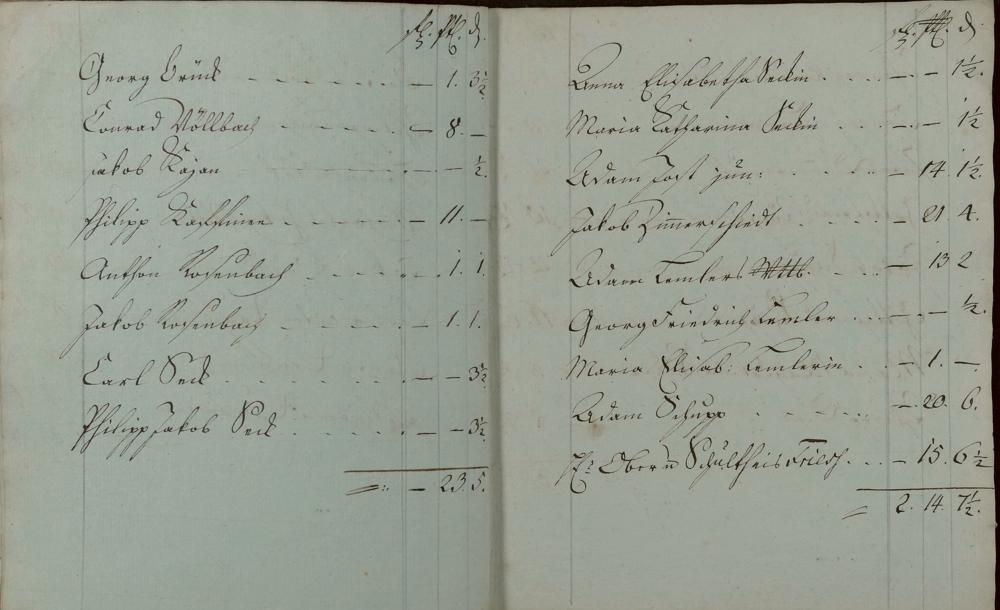 Georg Brück - - - - - — 1. 3½
Conrad Völlbach - - - - — 8. —
Jakob Kajan — — ½.
Philipp - - - - — 11. —
Anthon Rosenbach - - - - - . 1. 1.
Jakob Rosenbach - - - - — 1. 1.
Carl Seck - - - - - — — 3½
Philipp Jakob Seck - - - - — — 3½
— 23. 5.
Anna Elisabetha Seckin - - - — — 1½.
Maria Katharina Seckin - - - — — 1½
Adam Jost jun: - - - — 14. 1½.
Jakob Zimmerschiedt - - - — 21 4.
Adam Lemlers - - — 13 2
Georg Friedrich Lemler - - - — — ½.
Maria Elisab: Lemlerin - - — 1. —.
Adam Schupp - - - - — 20. 6.
Ober u Schultheis - - — 15. 6½
2. 14. 7½.